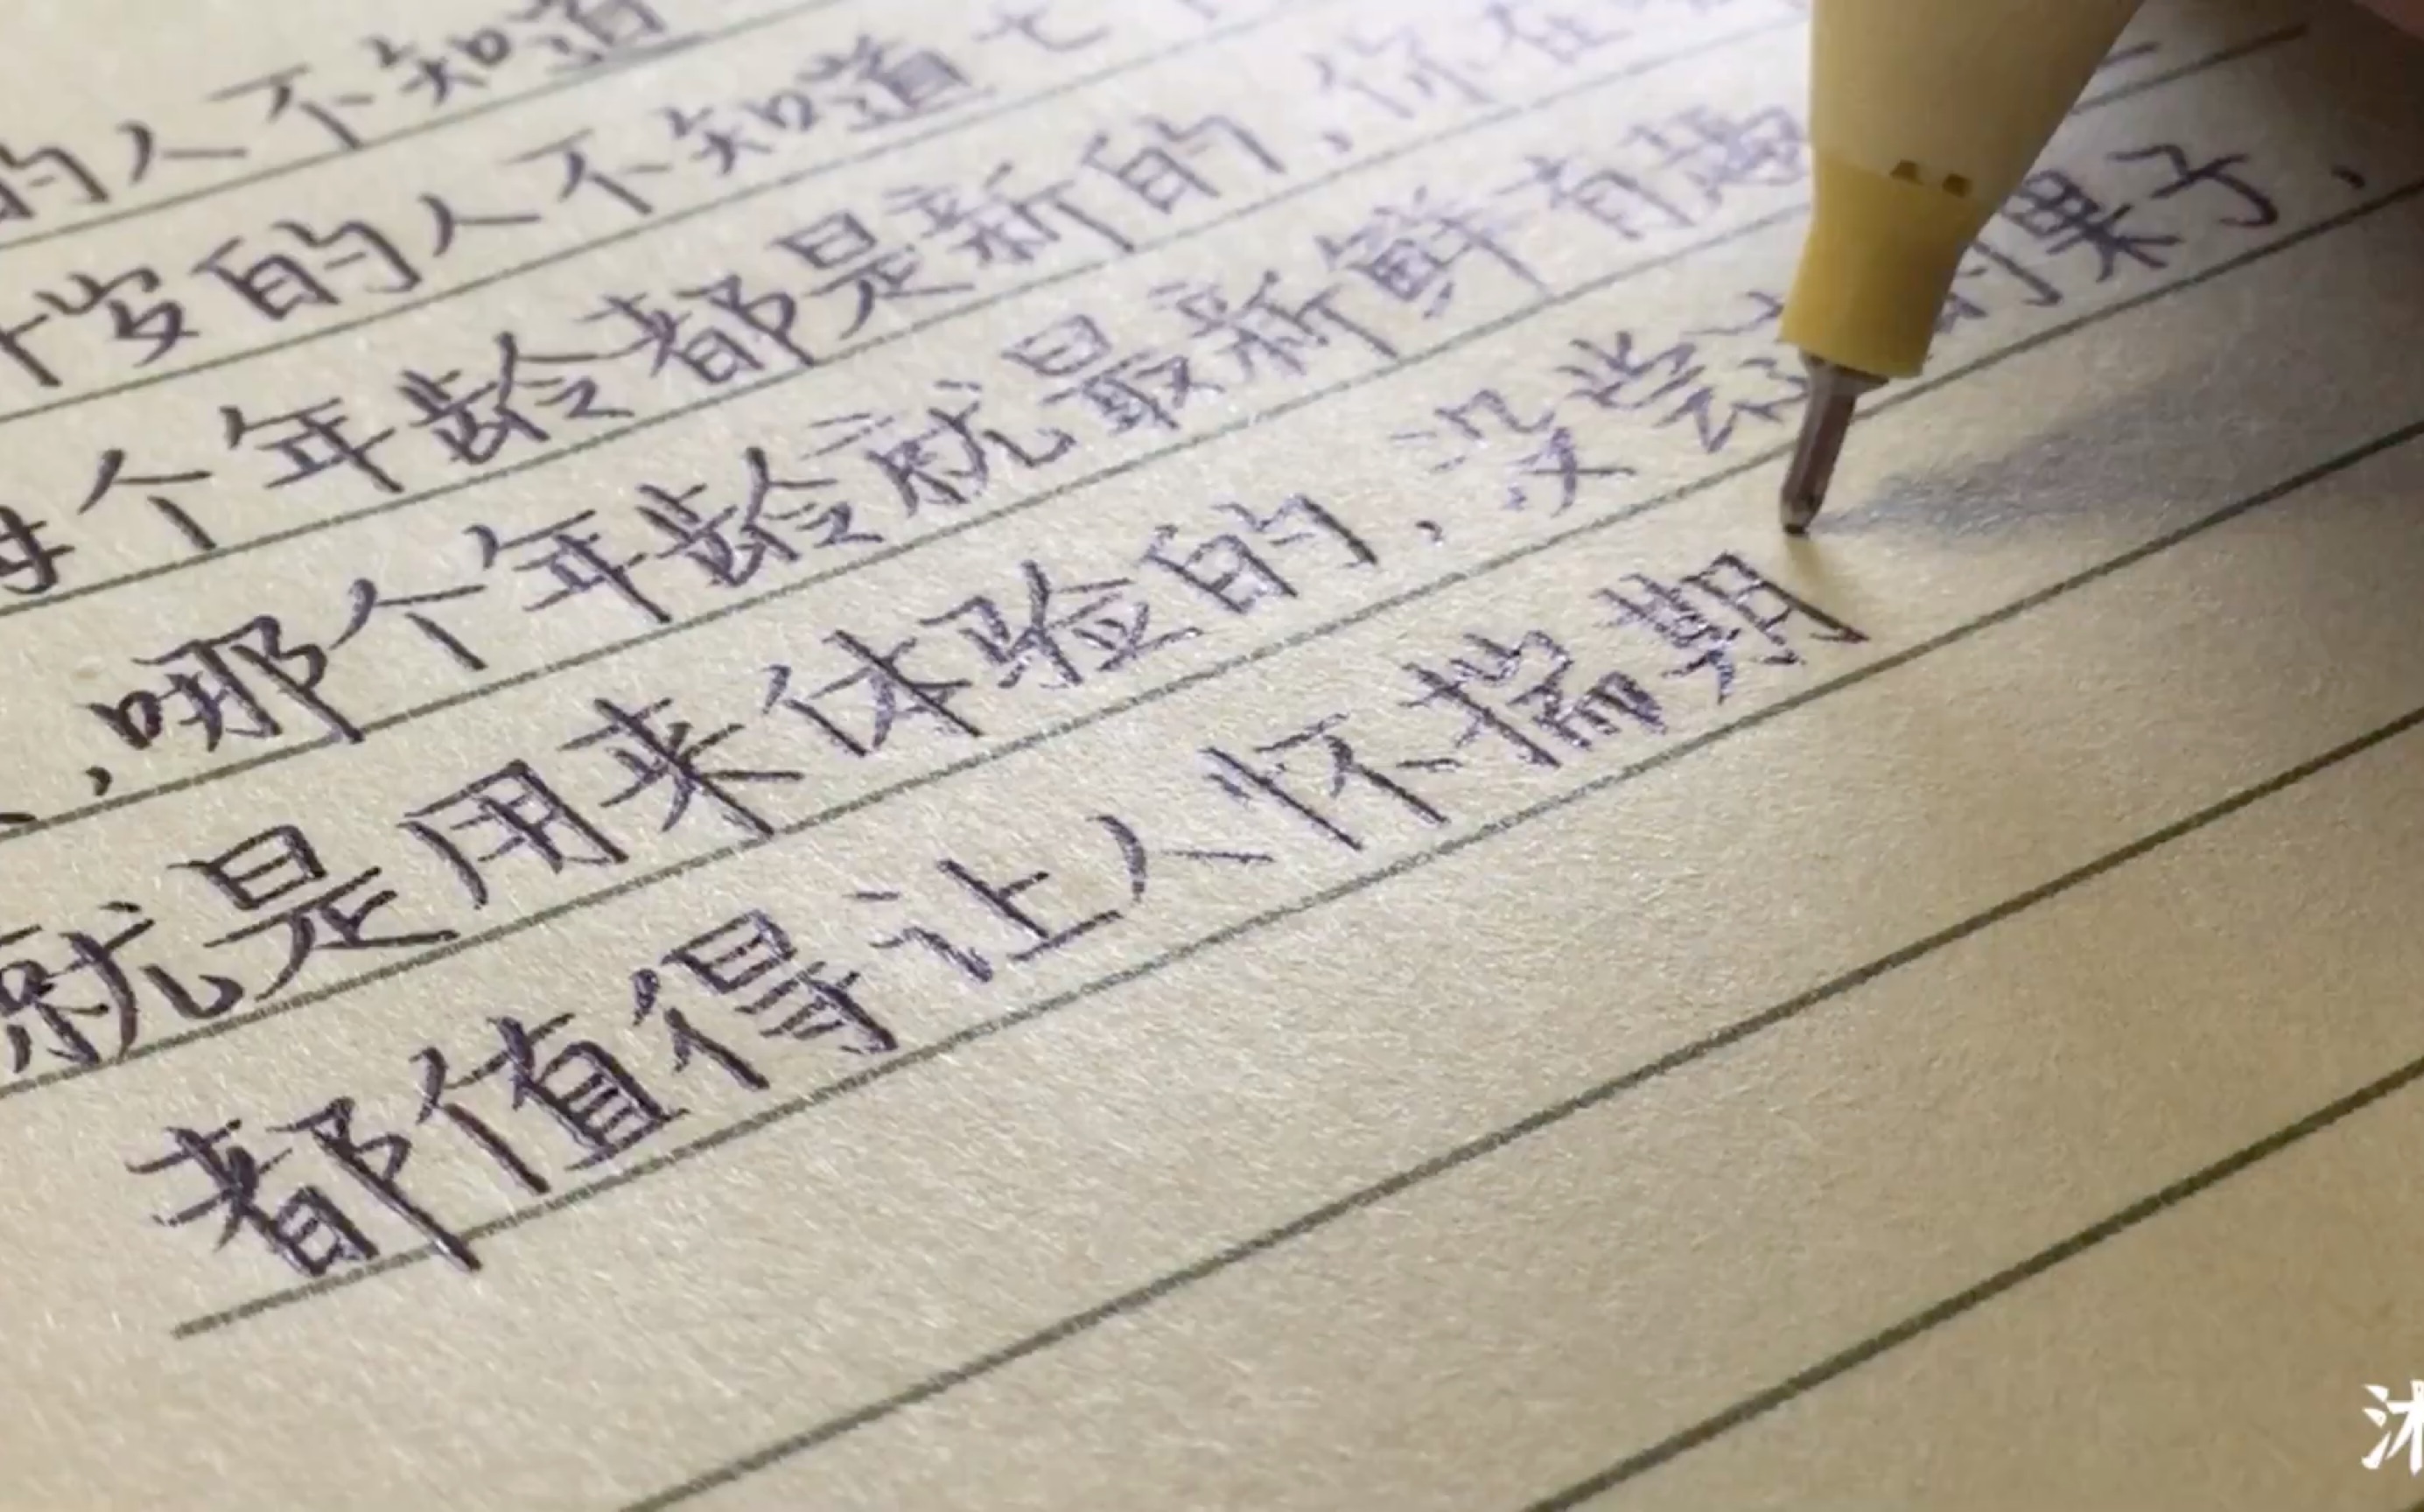 的人不知道
十岁的人不知道七
每个年龄都是新的，你在
，哪个年龄就最新鲜有趣
就是用来体验的，没尝过的果子，
都值得让人怀揣期
沐